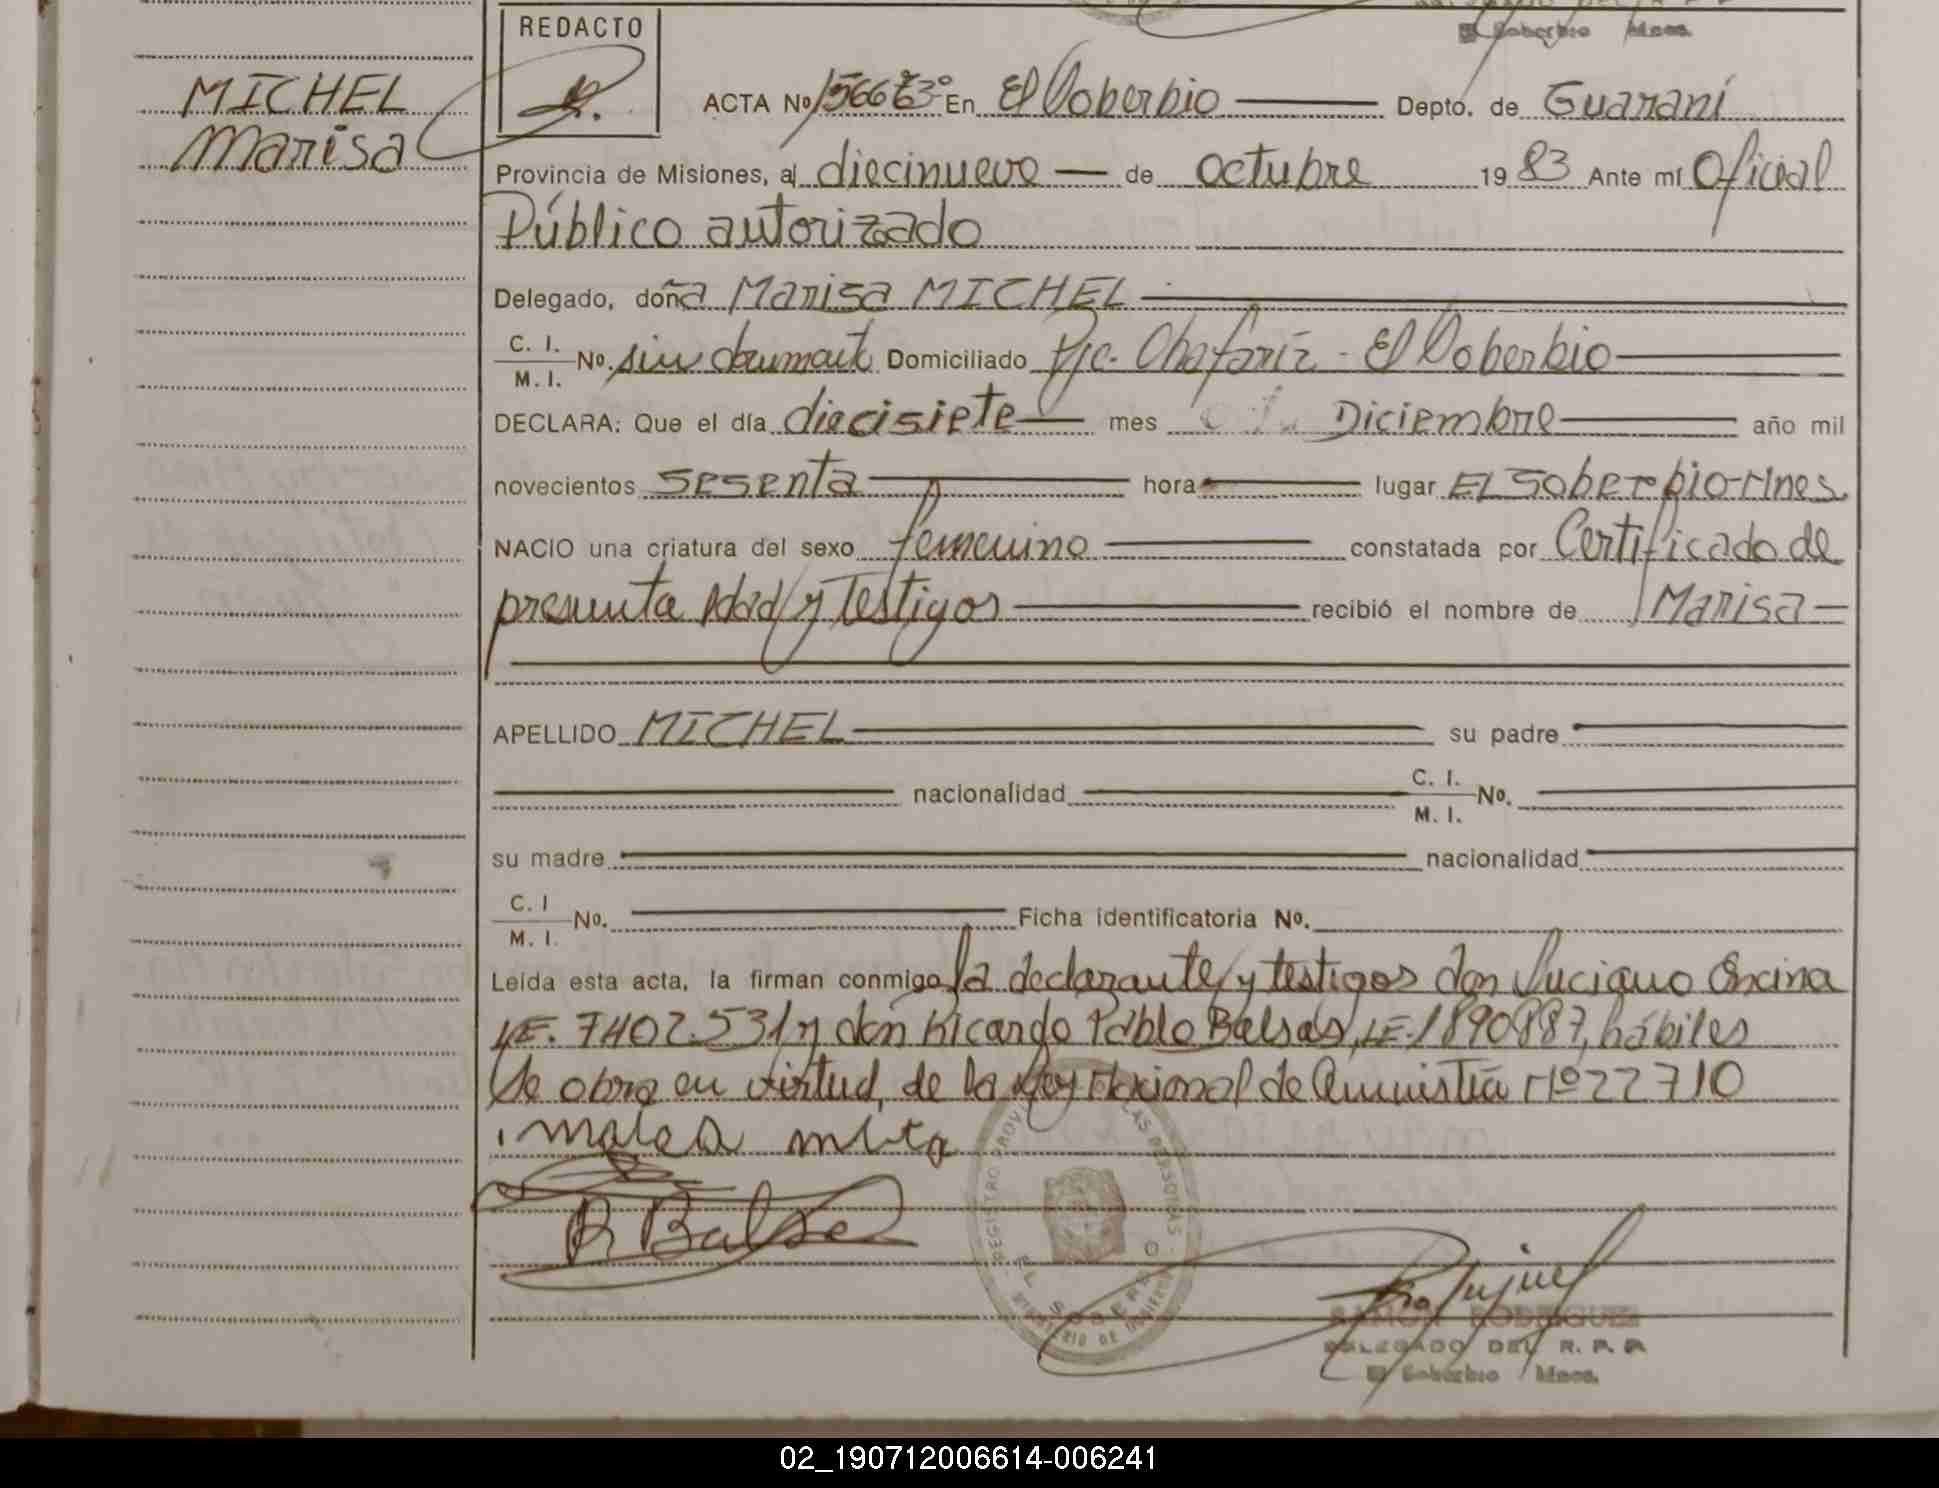 REDACTO
El Soberbio Mnes.
MICHEL
Marisa
ACTA Nº En El Soberbio Depto. de Guaraní
Provincia de Misiones, al diecinueve — de octubre 1983 Ante mí Oficial
Público autorizado
Delegado, doña Marisa MICHEL
C. I.
M. I. Nº. sin Domiciliado Pje. Chafariz - El Soberbio
DECLARA: Que el día diecisiete — mes Diciembre año mil
novecientos sesenta hora lugar EL Soberbio-Mnes.
NACIO una criatura del sexo femenino constatada por Certificado de
presunta edad y testigos recibió el nombre de Marisa —
APELLIDO MICHEL su padre
nacionalidad C. I.
M. I. Nº.
su madre nacionalidad
C. I
M. I. Nº. Ficha identificatoria Nº.
Leída esta acta, la firman conmigo la declarante y testigos don Luciano Encina
LE. 7402.531 y don Ricardo Pablo Balsas, LE. 1890887, hábiles
Se obra en virtud, de la Ley Nacional de Amnistía Nº 22710
R Balsa
REGISTRO PROV. LAS PERSONAS
EL SOBERBIO
RAMON RODRIGUEZ
DELEGADO DEL R. P. P.
El Soberbio Mnes.
02_190712006614-006241